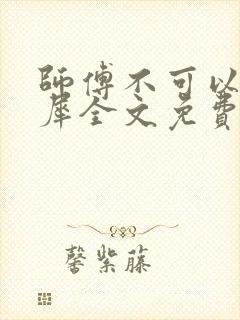 師傅不可以
犀全文免費
馨紫藤